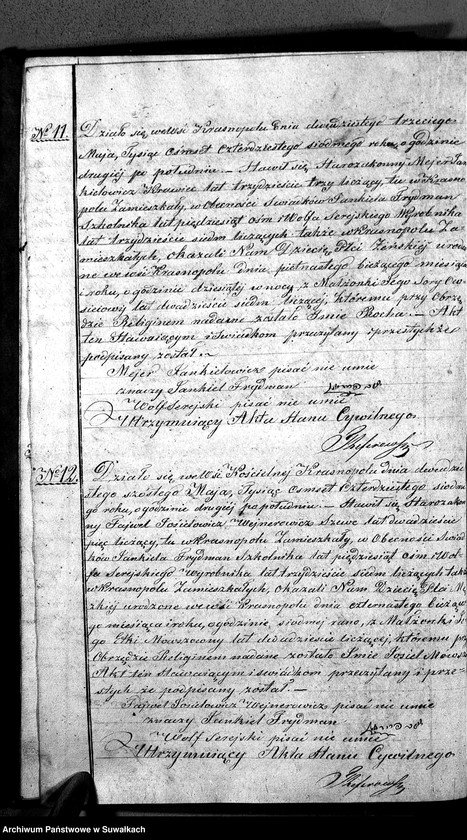 No 11.
Działo się we Wsi Krasnopolu dnia dwudziestego trzeciego
Maja, Tysiąc ośmset czterdziestego siódmego roku, o godzinie
drugiej po południu. — Stawił się Starozakonny Mejer Jan-
kielowicz Krawiec lat trzydzieście trzy liczący, tu w Krasno-
polu zamieszkały, w obecności Świadków Jankiela Frydman
Szkolnika lat piędziesiąt ośm i Wolfa Serejskiego Wyrobnika
lat trzydzieście siedm liczących także w Krasnopolu Za-
mieszkałych, okazali Nam Dziecię Płci Żeńskiej urodzo-
ne we wsi Krasnopolu Dnia piętnastego bieżącego miesiąca
i roku, o godzinie dziesiątej w nocy, z Małżonki Jego Sory
lat dwadzieścia siedm liczącej, któremu przy Obrzę-
dzie Religijnem nadane zostało Imie Rocha. — Akt
ten Stawającym i Świadkom przeczytany
podpisany został. —
Mejer Jankielowicz pisać nie umie
znaczy Jankiel Frydman
Wolf Serejski pisać nie umie
Utrzymujący Akta Stanu Cywilnego
No 12.
Działo się we Wsi Kościelnej Krasnopolu dnia dwudzie-
stego szóstego Maja, Tysiąc ośmset czterdziestego siódme-
go roku, o godzinie drugiej po południu. — Stawił się Starozakon-
ny Fajwel Josielowicz Wejnerowicz Szewc lat dwadzieście
pięć liczący, tu w Krasnopolu Zamieszkały, w Obecności Świad-
ków Jankiela Frydman Szkolnika lat piędziesiąt ośm i Wol-
fa Serejskiego Wyrobnika lat trzydzieście siedm liczących także
w Krasnopolu Zamieszkałych, okazali Nam Dziecię Płci Mę-
zkiej urodzone we wsi Krasnopolu dnia czternastego bieżące-
go miesiąca i roku, o godzinie siódmej rano, z Małżonki Je-
go Etki Mowszowny lat dwadzieścia liczącej, któremu przy
Obrzędzie Religijnem nadane zostało Imie Josiel Mowsza
Akt ten Stawającym i świadkom przeczytany i prze-
stych że podpisany został. —
Fajwel Josielowicz Wejnerowicz pisać nie umie
znaczy Jankiel Frydman
Wolf Serejski pisać nie umie
Utrzymujący Akta Stanu Cywilnego
Archiwum Państwowe w Suwałkach